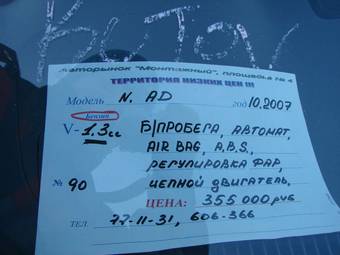 Авторынок "Монтажный", площадь № 4
ТЕРРИТОРИЯ НИЗКИХ ЦЕН !!!
Модель N. AD год 10.2007
Бензин
V- 1,3 сс Б/ПРОБЕГА, АВТОМАТ,
AIR BAG, A.B.S.,
РЕГУЛИРОВКА ФАР,
№ 90 ЦЕПНОЙ ДВИГАТЕЛЬ,
ЦЕНА: 355 000 руб
ТЕЛ. 77-11-31, 606-366